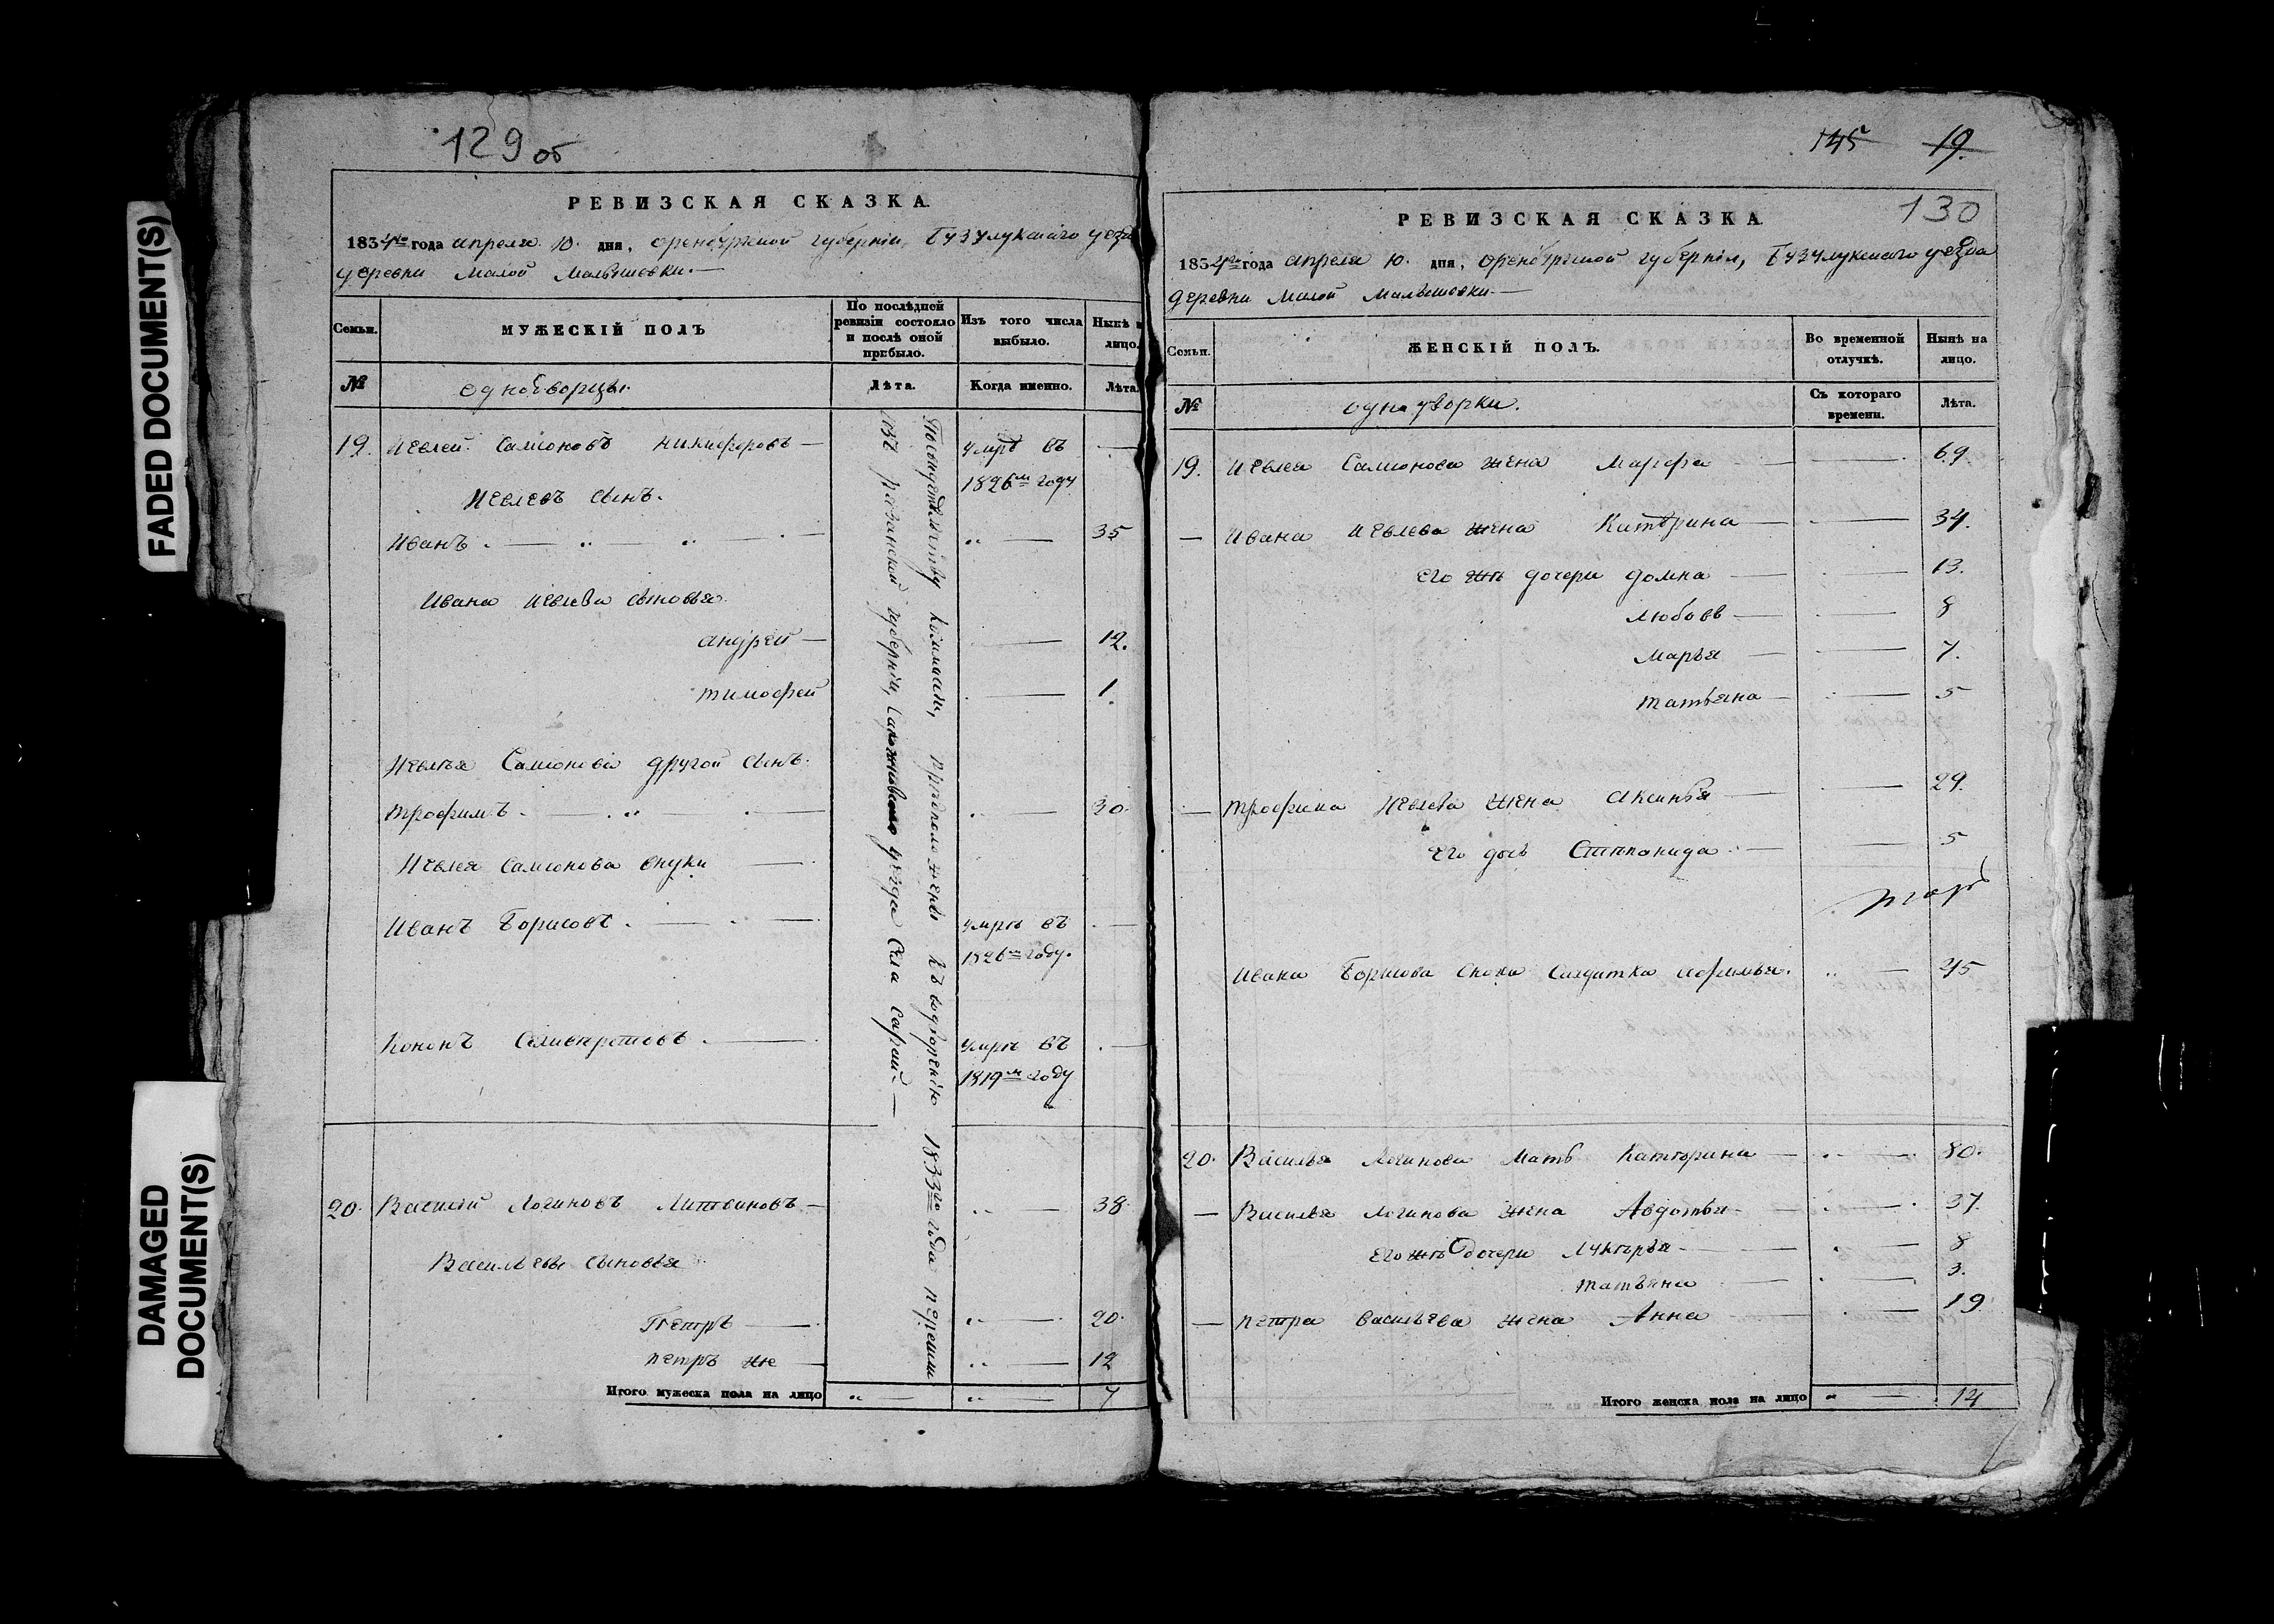 FADED DOCUMENT(S)
DAMAGED DOCUMENT(S)
129 об
РЕВИЗСКАЯ СКАЗКА.
1834го года апреля 10. дня, Оренбургской губернiи, Бузулукскаго уезда
деревни Малой Малышевки.—
Семьи.
МУЖЕСКIЙ ПОЛЪ
По послѣдней ревизiи состояло и послѣ оной прибыло.
Изъ того числа выбыло.
Нынѣ на лицо.
№
однодворцы.
Лѣта.
Когда именно.
Лѣта.
19. Иевлей Самсоновъ Никифоровъ — умръ въ —
1826м году
Иевлевъ сынъ.
Иванъ — 35
Ивана Иевлева сыновья
Андрей — 12.
Тимофей 1.
Иевлея Самсонова другой сынъ.
Трофимъ — 30.
Иевлея Самсонова внуки —
Иванъ Борисовъ — умръ въ —
1826м году.
Кононъ Селиверстовъ — умръ въ —
1819м году
20. Василей Логиновъ Литвиновъ — 38
Васильевы сыновья
Петръ — 20.
Петръ же — 12
Итого мужеска пола на лицо 7
По свидетельству комиссии, предположены къ водворенiю 1833го года перешли
изъ резанской губернiи, Сапожковскаго уезда села Сараи.—
145 19.
130
РЕВИЗСКАЯ СКАЗКА
1834го года апреля 10. дня, Оренбургской губернiи, Бузулукскаго уезда
деревни Малой Малышевки.—
Семьи.
ЖЕНСКIЙ ПОЛЪ.
Во временной отлучкѣ.
Нынѣ на лицо.
№
однодворки.
Съ котораго времени.
Лѣта.
19. Иевлея Самсонова жена Марфа — 69
— Ивана Иевлева жена Катерина — 34.
Его же дочери Домна — 13.
Любовь — 8
Марья — 7.
Татьяна — 5
— Трофима Иевлева жена Аксинья — 29.
Его дочь Степанида — 5
Ивана Борисова сноха Солдатка 45
20. Василья Логинова Мать Катерина — 80.
— Василья Логинова жена Авдотья — 37.
Его же дочери Лукерья — 8
Татьяна — 3.
— Петра Васильева жена Анна — 19
Итого женска пола на лицо 14